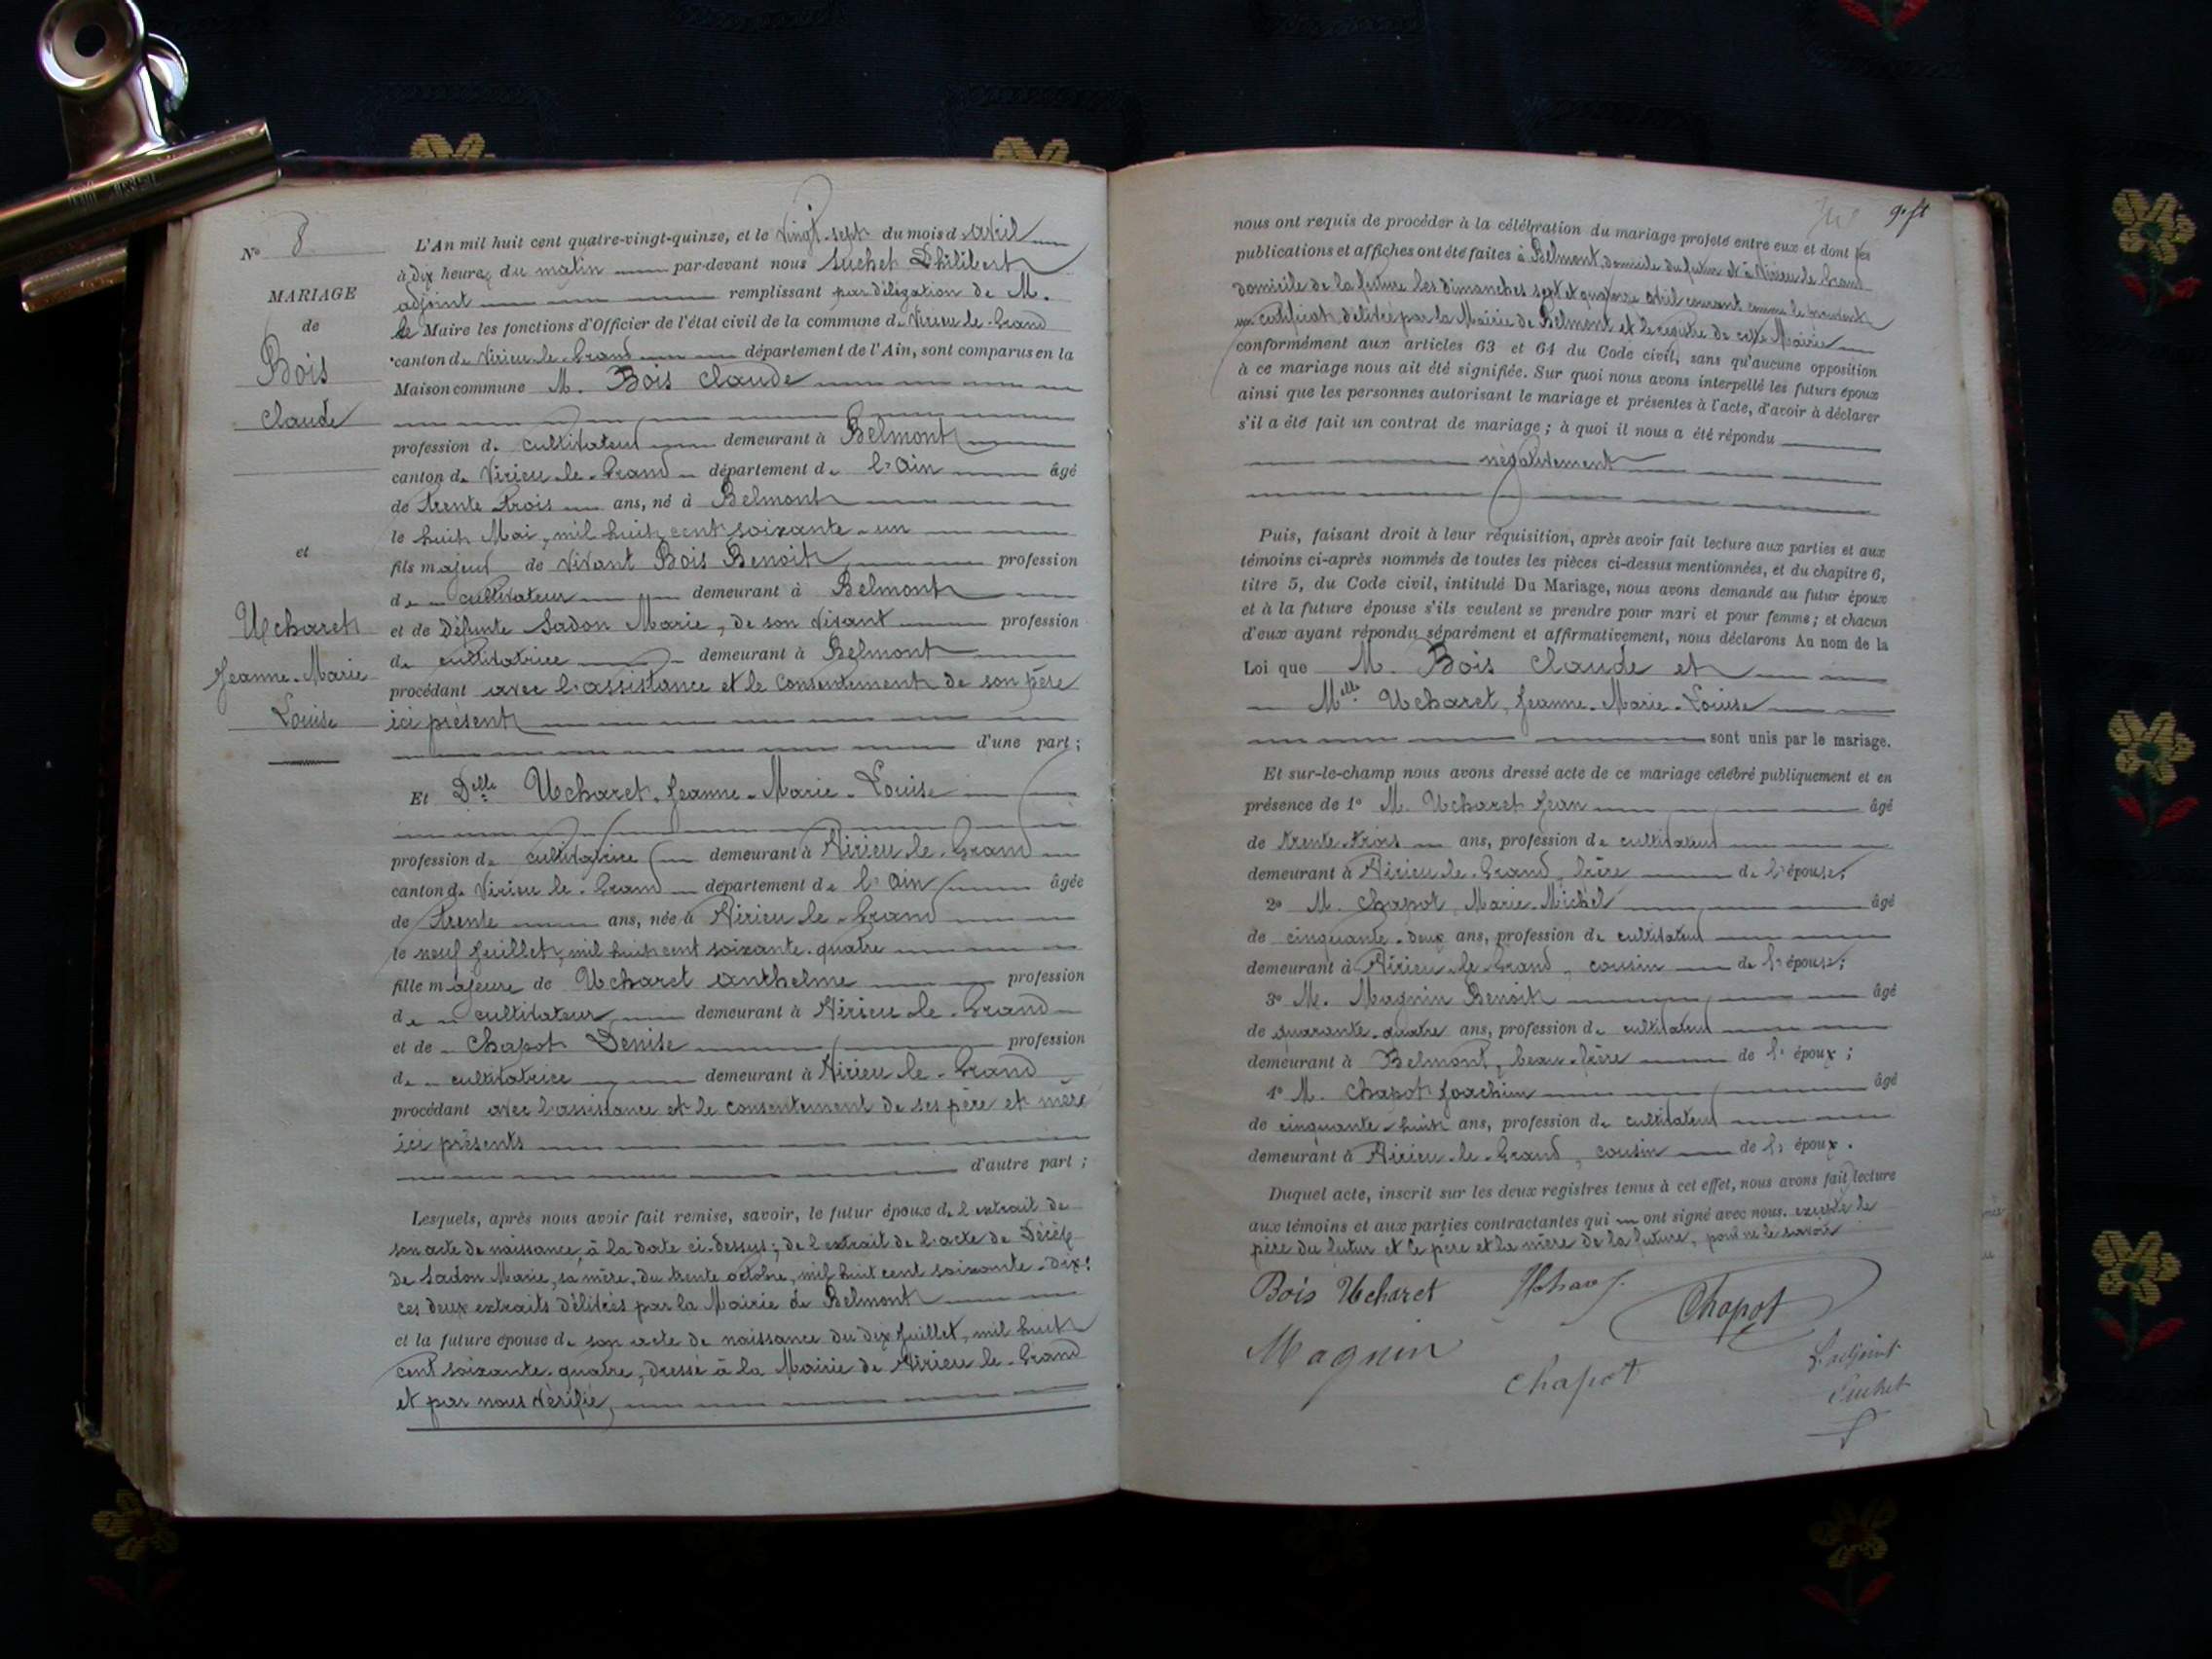 N° 8
MARIAGE
de
Bois
Claude
et
Ucharet
Jeanne-Marie
Louise
L'An mil huit cent quatre-vingt-quinze, et le vingt-sept du mois d'avril
à dix heures du matin par-devant nous Suchet Philibert
adjoint remplissant par délégation de M.
le Maire les fonctions d'Officier de l'état civil de la commune de Virieu-le-Grand
canton de Virieu-le-Grand département de l'Ain, sont comparus en la
Maison commune M. Bois Claude
profession de cultivateur demeurant à Belmont
canton de Virieu-le-Grand département de l'Ain âgé
de trente trois ans, né à Belmont
le huit Mai, mil huit cent soixante-un
fils majeur de vivant Bois Benoit profession
de cultivateur demeurant à Belmont
et de défunte Sadon Marie, de son vivant profession
de cultivatrice demeurant à Belmont
procédant avec l'assistance et le consentement de son père
ici présent
d'une part ;
Et Delle Ucharet Jeanne-Marie-Louise
profession de cultivatrice demeurant à Virieu-le-Grand
canton de Virieu-le-Grand département de l'Ain âgée
de trente ans, née à Virieu-le-Grand
le neuf Juillet, mil huit cent soixante-quatre
fille majeure de Ucharet Anthelme profession
de cultivateur demeurant à Virieu-le-Grand
et de Chapot Denise profession
de cultivatrice demeurant à Virieu-le-Grand
procédant avec l'assistance et le consentement de ses père et mère
ici présents
d'autre part ;
Lesquels, après nous avoir fait remise, savoir, le futur époux de l'extrait de
son acte de naissance, à la date ci-dessus ; de l'extrait de l'acte de décès
de Sadon Marie, sa mère, du trente octobre, mil huit cent soixante-dix ;
ces deux extraits délivrés par la Mairie de Belmont
et la future épouse de son acte de naissance du dix Juillet, mil huit
cent soixante-quatre, dressé à la Mairie de Virieu-le-Grand
et par nous vérifié,
nous ont requis de procéder à la célébration du mariage projeté entre eux et dont les
publications et affiches ont été faites à Belmont, domicile du futur et à Virieu-le-Grand
domicile de la future les dimanches sept et quatorze avril courant comme le
un certificat délivré par la Mairie de Belmont et le registre de cette Mairie
conformément aux articles 63 et 64 du Code civil, sans qu'aucune opposition
à ce mariage nous ait été signifiée. Sur quoi nous avons interpellé les futurs époux
ainsi que les personnes autorisant le mariage et présentes à l'acte, d'avoir à déclarer
s'il a été fait un contrat de mariage ; à quoi il nous a été répondu
négativement
Puis, faisant droit à leur réquisition, après avoir fait lecture aux parties et aux
témoins ci-après nommés de toutes les pièces ci-dessus mentionnées, et du chapitre 6,
titre 5, du Code civil, intitulé Du Mariage, nous avons demandé au futur époux
et à la future épouse s'ils veulent se prendre pour mari et pour femme ; et chacun
d'eux ayant répondu séparément et affirmativement, nous déclarons Au nom de la
Loi que M. Bois Claude et
Melle Ucharet, Jeanne-Marie-Louise
sont unis par le mariage.
Et sur-le-champ nous avons dressé acte de ce mariage célébré publiquement et en
présence de 1° M. Ucharet Jean âgé
de trente-trois ans, profession de cultivateur
demeurant à Virieu-le-Grand, frère de l'épouse,
2° M. Chapot, Marie-Michel âgé
de cinquante-deux ans, profession de cultivateur
demeurant à Virieu-le-Grand, cousin de l'épouse ;
3° M. Magnin Benoit âgé
de quarante-quatre ans, profession de cultivateur
demeurant à Belmont, beau-frère de l'époux ;
4° M. Chapot Joachim âgé
de cinquante-huit ans, profession de cultivateur
demeurant à Virieu-le-Grand, cousin de l'époux.
Duquel acte, inscrit sur les deux registres tenus à cet effet, nous avons fait lecture
aux témoins et aux parties contractantes qui ont signé avec nous, excepté le
père du futur et le père et la mère de la future, pour ne le savoir
Bois Ucharet
Chapot
Magnin
Chapot
L'adjoint
Suchet